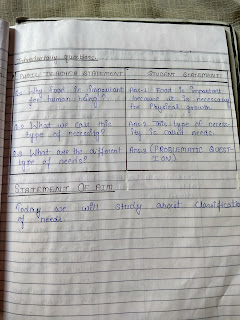 Introductory questions.
PUPIL TEACHER STATEMENT
STUDENT STATEMENT
Q.1 Why Food is important
for human being?
Ans-1 Food is important
because it is necessary
for physical growth.
Q.2 What we call this
type of necessity?
Ans-2 This type of neces-
ity is called needs.
Q.3 What are the different
type of needs?
Ans-3 (PROBLEMATIC QUEST-
ION)
STATEMENT OF AIM
Today we will study about classification
of needs.